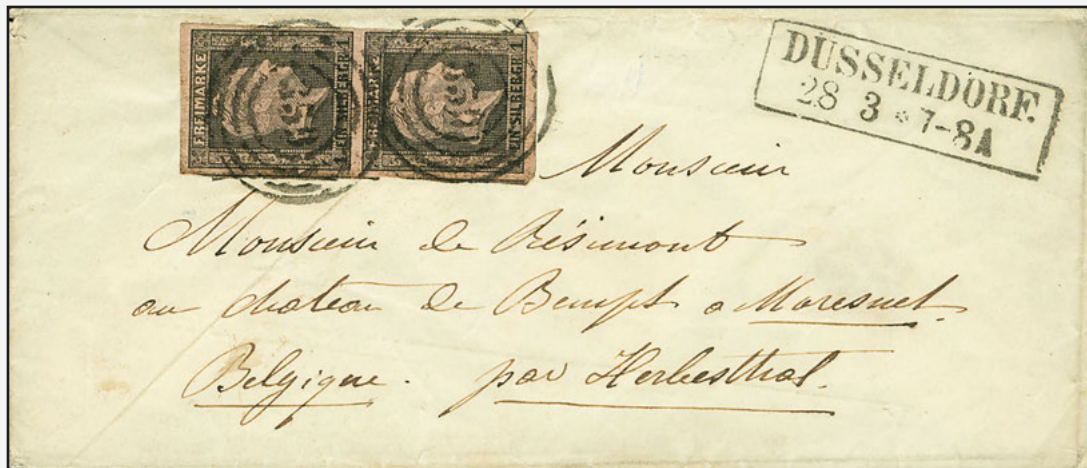 FREIMARKE
EIN SILBERGR. 1
FREIMARKE
EIN SILBERGR. 1
DUSSELDORF.
28 3 * 7-8A
Monsieur
Monsieur de Résimont
au chateau de Bempt a Moresnet.
Belgique. par Herbesthal.